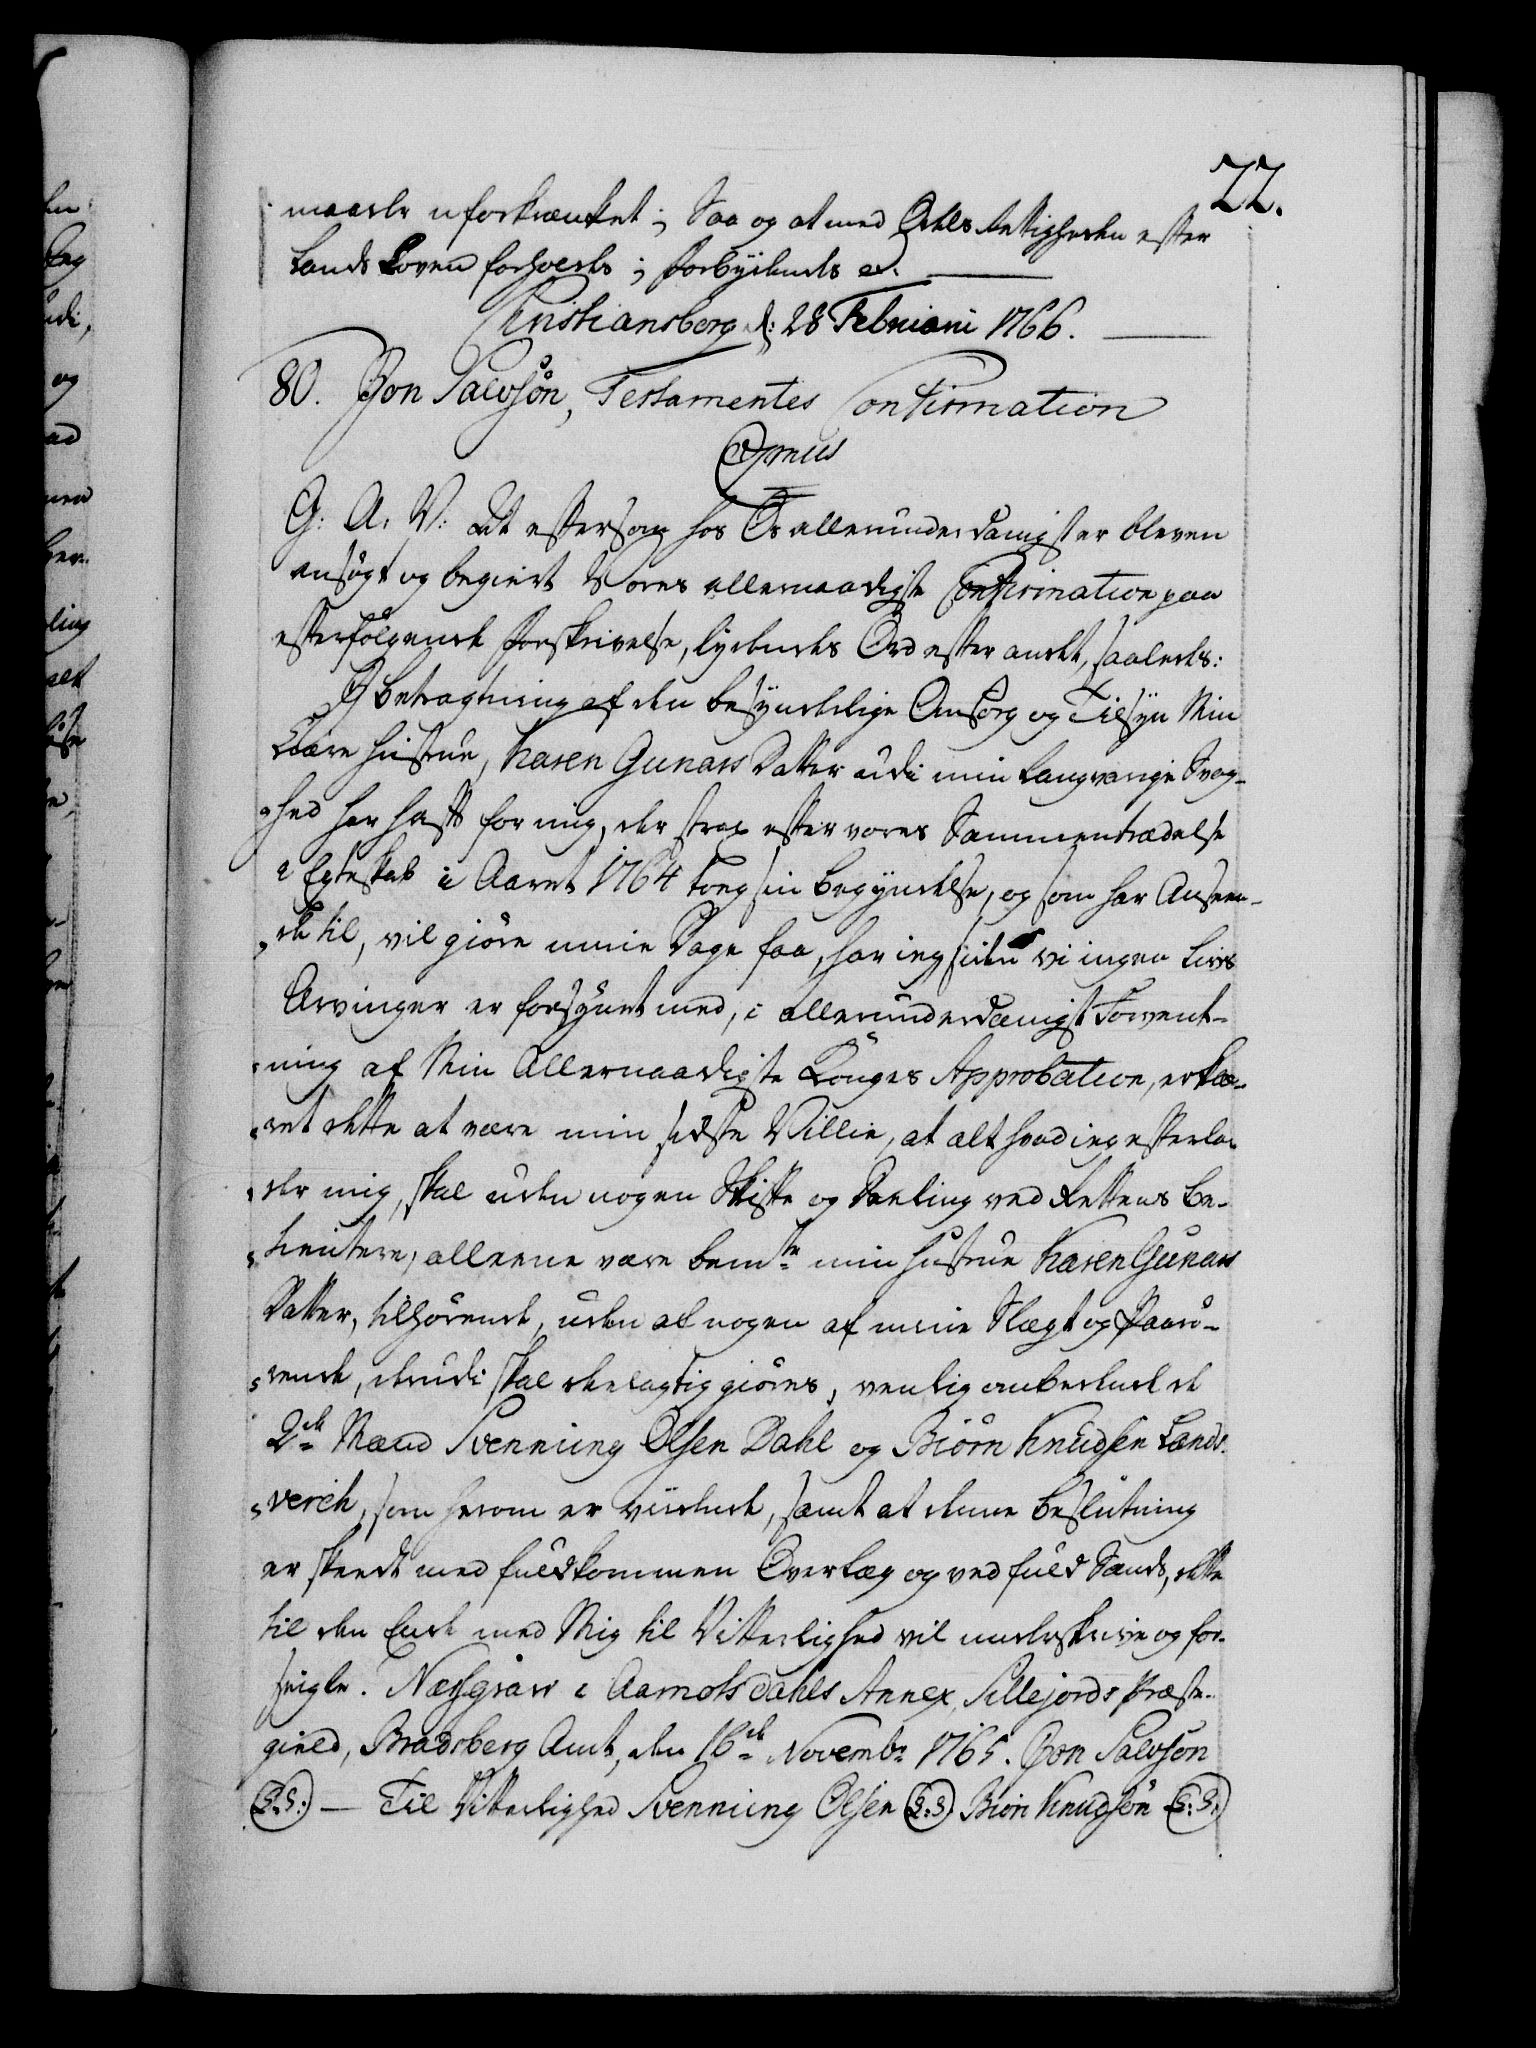 22.
maade uforkrænket; Saa og at med Odels Rettigheden efter
Lands Loven forholdes; forbydendes etc.
Christiansborg d: 28 Februarii 1766.
80. Jon Salvesøn, Testamentes Confirmation
Gratis
G: A: V: At eftersom hos Os allerunderdanigst er bleven
ansøgt og begiert Vores allernaadigste Confirmation paa
efterfølgende forskrivelse, lydendes Ord efter andet, saaledes:
J betragtning af den besynderlige Omsorg og Tilsyn Min
kiære hustrue, Karen Gunars Datter udi min langvarige Svag-
hed har hafft for mig, der strax efter vores Sammentrædelse
i Egteskab i Aaret 1764 tog sin begyndelse, og som har Anseen-
de til, vil giøre mine Dage faa, har ieg siden vi ingen Livs
Arvinger er forsynet med, i allerunderdanigst Forvent-
ning af Min Allernaadigste Konges Approbation, erklæ-
ret dette at være min sidste Villie, at alt hvad ieg efterla-
der mig, skal uden nogen Skifte og Deeling ved Rettens be-
tientere, alleene være bemte min hustrue Karen Gunars
Datter, tilhørende, uden at nogen af mine Slægt og Paarø-
rende, derudi skal deelagtig giøres, venlig ombedende de
2de Mænd Svenning Olsen Dahl og Biørn Knudsen Lands-
verck, som herom er vidende, samt at denne beslutning
er skeedt med fuldkommen Overlæg og ved fuld Sands, dette
til den Ende med Mig til Vitterlighed vil underskrive og for-
seigle. Næsgrav i Aamotsdahls Annex, Sillejords Præste-
gield, Bradsberg Amt, den 16de Novembr 1765. Jon Salvesøn
(L.S.) — Til Vitterlighed Svenning Olsen (L:S) Biørn Knudsøn (L:S:)